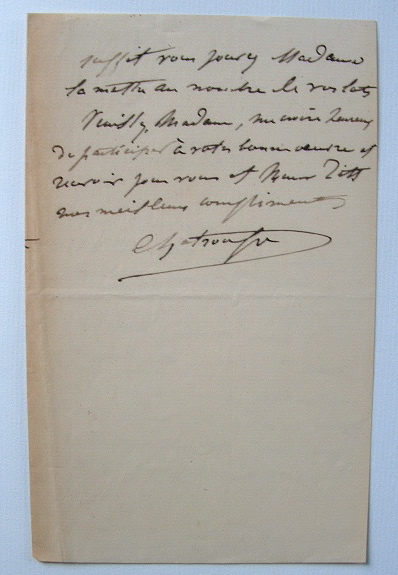 suffit vous pourrez Madame
la mettre au nombre de vos lots
Veuillez, Madame, me croire heureux
de participer à votre bonne oeuvre et
recevoir pour vous et
mes meilleurs compliments